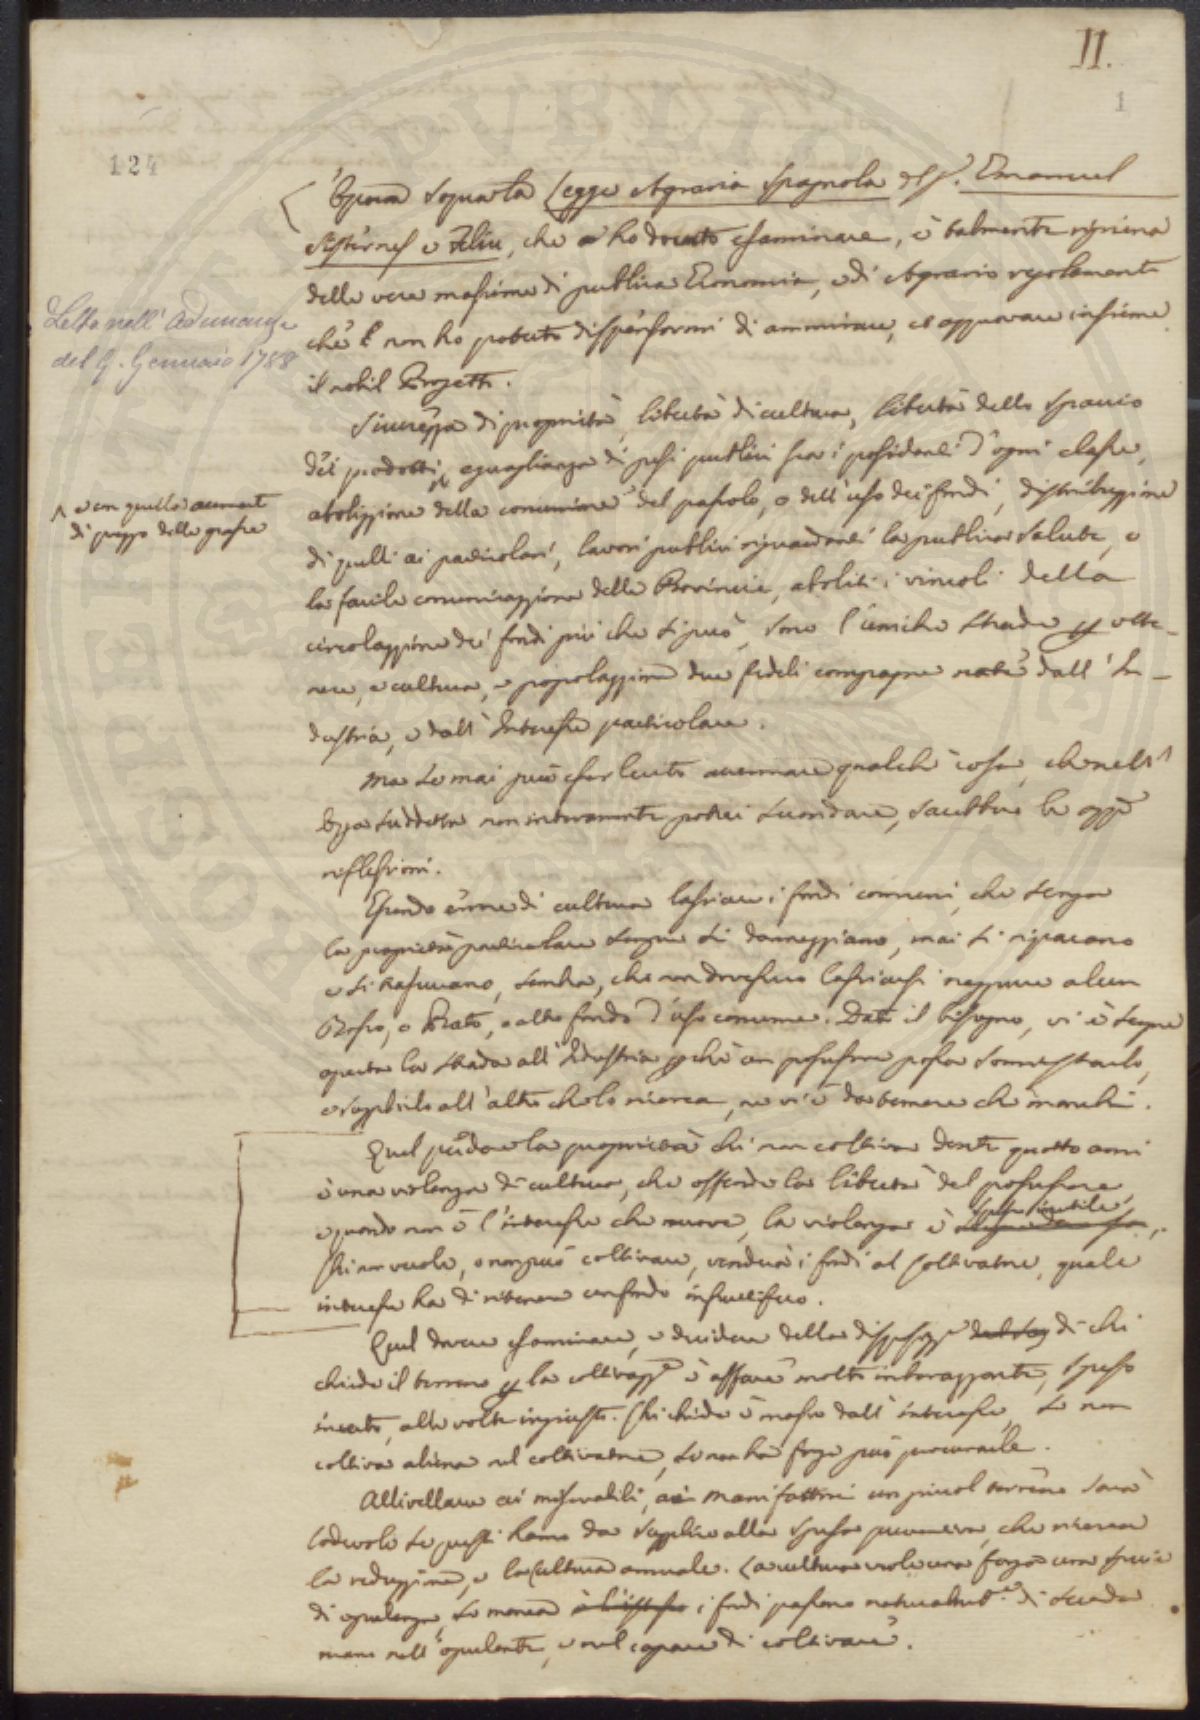 II.
1
124
L'Opera sopra la Legge Agraria Spagnola del S. Emanuel
Sisternes e Feliu, che ho dovuto esaminare, è talmente ripiena
delle vere massime di publica Economia, e di Agrario regolamento
che non ho potuto dispensarmi di ammirare, ed approvare insieme
il nobil Progetto.
Letta nell' Adunanza
del 9. Gennaio 1788
Sicurezza di proprietà, libertà di cultura, libertà dello spaccio
dei prodotti, eguaglianza di pesi publici fra i possidenti d'ogni classe,
^ e con quella aumento
di prezzo delle grasce
abolizzione della comunione del pascolo, e dell'uso dei fondi, distribuzzione
di quelli ai particolari, lavori publici riguardanti la publica salute, e
la facile comunicazzione delle Provincie, aboliti i vincoli della
circolazzione dei fondi più che si può, sono l'uniche strade p otte-
nere, e cultura, e popolazzione due fedeli compagne nate dall' In-
dustria, e dall' Interesse particolare.
Ma se mai può esser lecito accennare qualche cosa, che nell'
Opa suddetta non interamente potrei secondare, sarebbero le oppe
riflessioni.
Essendo errore di cultura lasciare i fondi comuni, che senza
la proprietà particolare sempre si danneggiano, mai si riparano
e si trascurano, sembra, che non dovessero lasciarsi neppure alcun
Bosco, o Prato, o altro fondo d'uso comune. Dato il bisogno, vi è sempre
aperta la strada all' Industria pchè un possessore possa somministrarlo,
e supplirlo all' altro che lo ricerca, ne vi è da temere che manchi.
Quel perdere la proprietà chi non coltiva dentro quattro anni
è una violenza di cultura, che offende la libertà del possessore,
e quando non è l'interesse che muove, la violenza è spesso inutile.
Chi non vuole, o non può coltivare, venderà i fondi al coltivatore, quale
interesse ha di ritenere un fondo infruttifero.
Quel dovere esaminare, e decidere della di chi
chiede il terreno p la coltivazze è affare molto imbarazzante, spesso
incerto, alle volte ingiusto. Chi chiede è mosso dall' interesse, se non
coltiva aliena nel coltivatore, se non ha forze può procurarle.
Allivellare ai miserabili, ai manifattori un piccol terreno sarà
lodevole se questi hanno da supplire alla spesa , che ricerca
la reduzzione, e la cultura annuale. La cultura vuole una forza una specie
di opulenza, se manca i fondi passano naturalmte. di seconda
mano nell' opulente, e nel capace di coltivare.